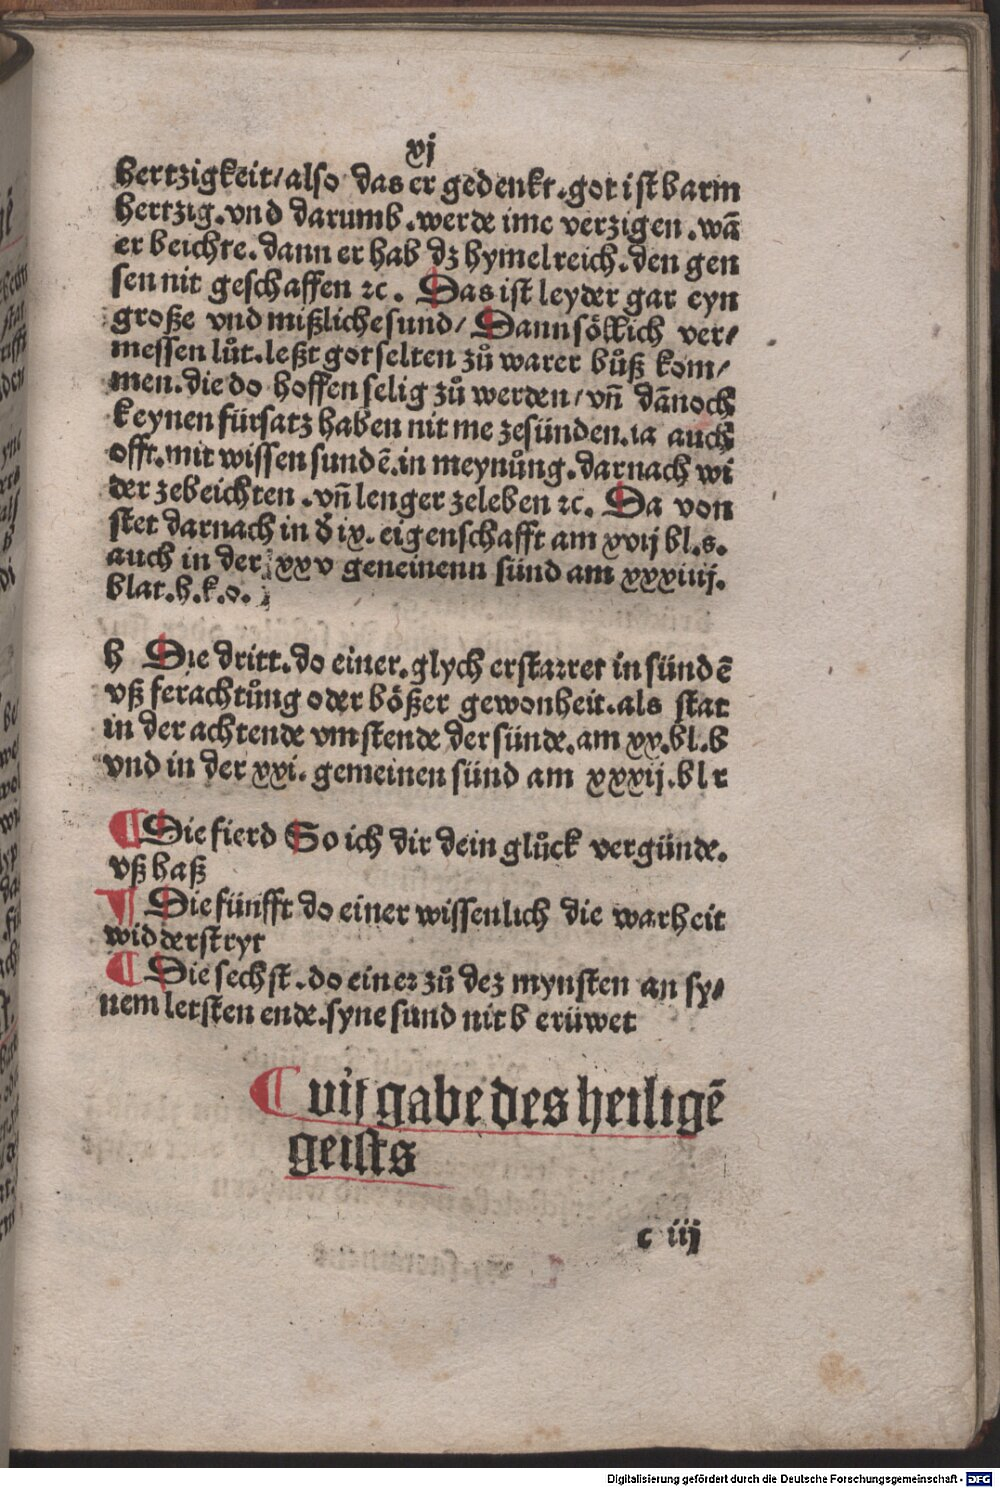 xj
hertzigkeit/also das er gedenkt.got ist barm
hertzig.vnd darumb.werde ime verzigen.wā
er beichte.dann er hab dz hymelreich.den gen
sen nit geschaffen ⁊c. Das ist leyder gar eyn
große vnd mißliche sund/ Dann söllich ver/
messen lůt.leßt got selten zů warer bůß kom/
men.die do hoffen selig zů werden/vñ dānoch
keynen fürsatz haben nit me zesünden.ia auch
offt.mit wissen sundē.in meynůng.darnach wi
der zebeichten.vñ lenger zeleben ⁊c. Da von
stet darnach in d̄ ix.eigenschafft am xvij bl.s.
auch in der xxv geneinenn sünd am xxxiiij.
blat.h.k.o.
h Die dritt.do einer.glych erstarret in sündē
vß ferachtůng oder bößer gewonheit.als stat
in der achtende vmstende der sünde.am xx.bl.b
vnd in der xxi.gemeinen sünd am xxxij.bl r
¶ Die fierd So ich dir dein glůck vergünde.
vß haß
¶ Die fünfft do einer wissenlich die warheit
widderstryt
¶ Die sechst.do einer zů dez mynsten an sy/
nem letsten ende.syne sund nit berüwet
¶ vij gabe des heiligē
geists
c iij
Digitalisierung gefördert durch die Deutsche Forschungsgemeinschaft - DFG